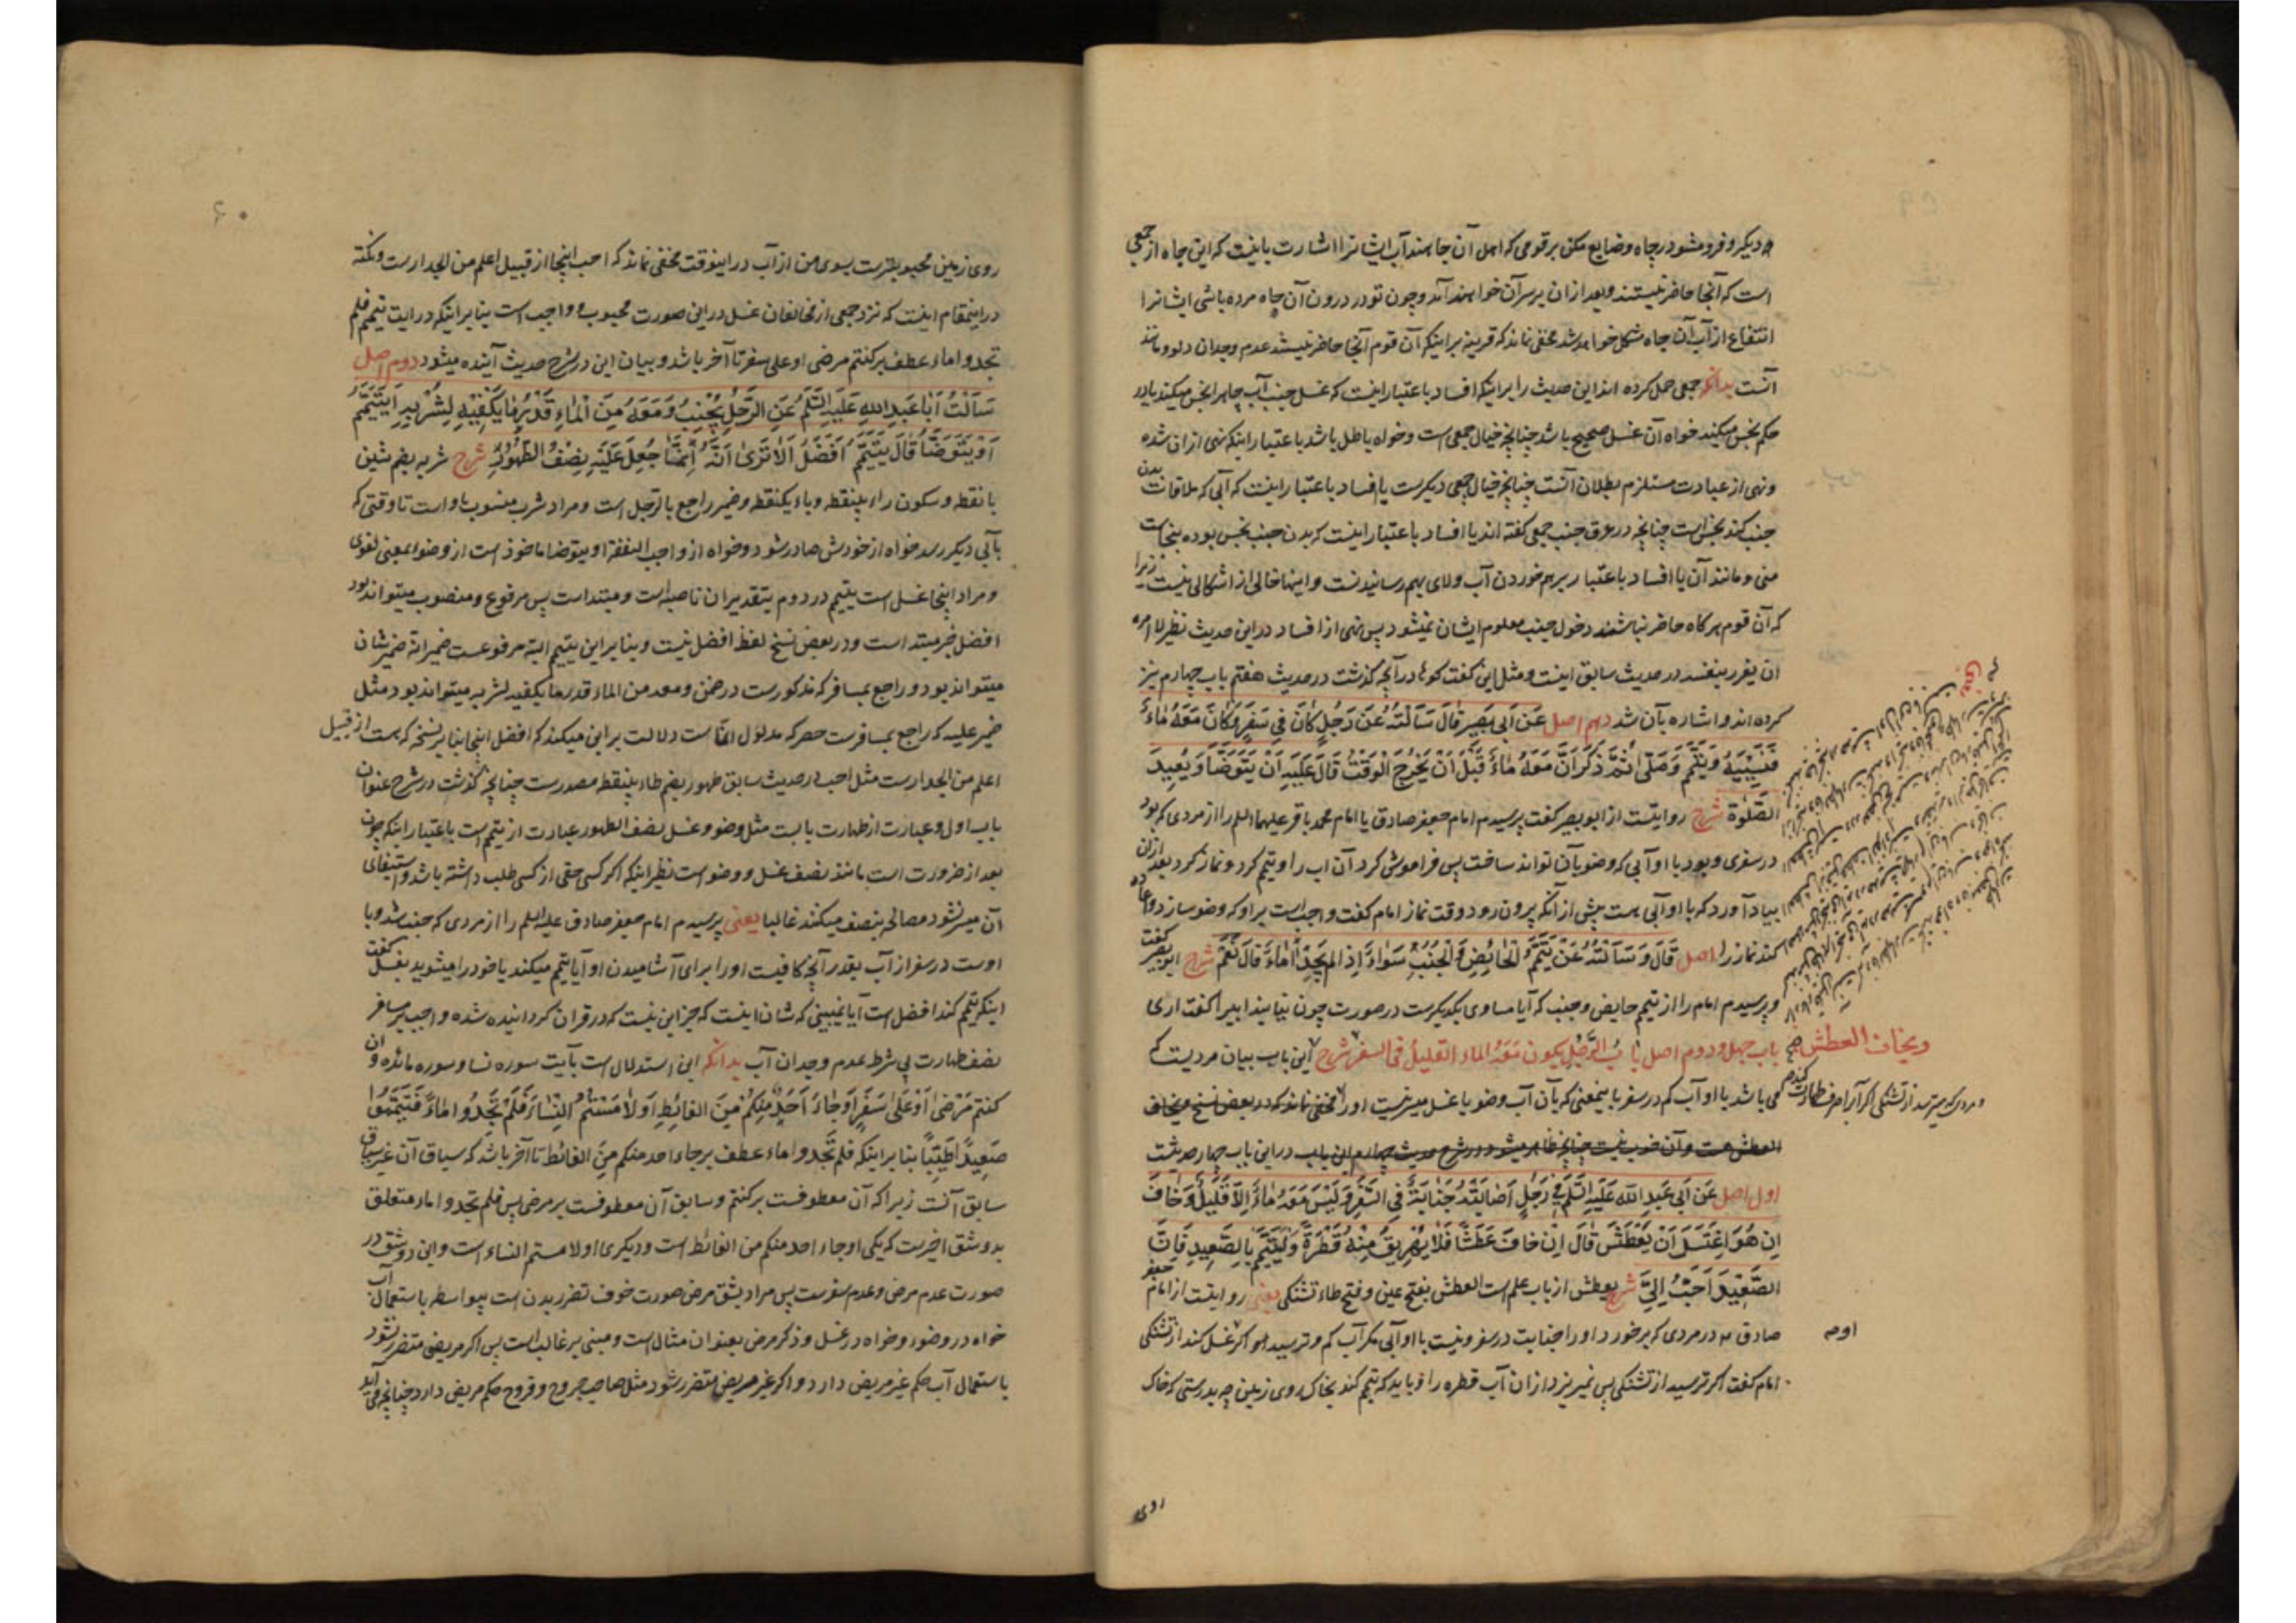 دیگر و فرو مشو در چاه و ضایع مکن بر قومی که اهل آن جا هستند آب ایشانرا اشارت باینست که این چاه از جمعی
است که آنجا حاضر نیستند و بعد ازان بر سر آن خواهند آمد و چون تو در درون آن چاه مرده باشی ایشانرا
انتفاع از آب آن چاه مشکل خواهد شد مخفی نماند که قرینه بر اینکه آن قوم آنجا حاضر نیستند عدم وجدان دلو و مانند
آنست بدانکه جمعی حمل کرده اند این حدیث را بر اینکه افساد باعتبار اینست که غسل جنب آب چاه را نجس میکند یا در
حکم نجس میکند خواه آن غسل صحیح باشد چنانچه خیال جمعی است و خواه باطل باشد باعتبار اینکه نهی ازان شده
و نهی از عبادت مستلزم بطلان آنست چنانچه خیال جمعی دیگرست یا افساد باعتبار اینست که آبی که ملاقات بدن
جنب کند نجس است چنانچه در عرق جنب جمعی گفته اند یا افساد باعتبار اینست که بدن جنب نجس بوده بنجاست
منی و مانند آن یا افساد باعتبار برهم خوردن آب و لای بهم رسانیدنست و اینها خالی از اشکالی نیست زیرا
که آن قوم هر گاه حاضر نباشند دخول جنب معلوم ایشان نمیشود پس نهی از افساد در این حدیث نظیر لا امره
ان یغرر بنفسه در حدیث سابق اینست و مثل این گفت‌گو را در آنچه گذشت در حدیث هفتم باب چهارم نیز
کرده اند و اشاره بآن شد دهم اصل عَن أبی بَصیر قالَ سَألتُهُ عَن رَجُلٍ کانَ فی سَفَرٍ وَکانَ مَعَهُ ماءٌ
فَنَسِیَهُ وَتَیَمَّمَ وَصَلّی ثُمَّ ذَکَرَ أنَّ مَعَهُ ماءً قَبلَ أن یَخرُجَ الوَقتُ قالَ عَلَیهِ أن یَتَوَضَّأ وَیُعیدَ
الصَّلوةَ شرح روایتست از ابو بصیر گفت پرسیدم امام جعفر صادق یا امام محمد باقر علیهما السلم را از مردی که بود
در سفری و بود با او آبی که وضو بآن تواند ساخت پس فراموش کرد آن اب را و تیمم کرد و نماز کرد بعد ازان
بیاد آورد که با او آبی هست پیش از آنکه بیرون رود وقت نماز امام گفت واجب است بر او که وضو سازد و اعاده
کند نماز را اصل قالَ وَسَألتُهُ عَن تَیَمُّمِ الحائِضِ وَالجُنُبِ سَواءٌ إذا لم یَجِدا ماءً قالَ نَعَم شرح ابو بصیر گفت
و پرسیدم امام را از تیمم حایض و جنب که آیا مساوی یکدیگرست در صورت چون نیابند ابیرا گفت اری
باب چهل و دوم اصل بابُ الرَّجُلِ یکون مَعَهُ الماء القلیلُ فی السفر شرح این باب بیان مردیست که
ویخاف العطش صح
می باشد با او آب کم در سفر باینمعنی که بآن آب وضو یا غسل میسر نیست او را مخفی نماند که در بعض نسخ ویخاف
و مردی که میترسد از تشنگی اگر آنرا صرف طهارت کند صح
العطش هست و آن خوب نیست چنانچه ظاهر میشود در شرح حدیث چهارم این باب در این باب چهار حدیثست
اول اصل عَن أبی عَبدِ الله عَلَیهِ السَّلم فی رَجُلٍ أصابَتهُ جَنابَةٌ فی السَّفَرِ وَلَیسَ مَعَهُ ماءٌ إلّا قَلیلٌ وَخافَ
إن هُوَ اغتَسَلَ أن یَعطَشَ قالَ إن خافَ عَطَشًا فَلا یُهَریقُ مِنهُ قَطرَةً وَلیَتَیَمَّم بِالصَّعیدِ فَإنَّ
الصَّعیدَ أحَبُّ إلَیَّ شرح یعطش از باب علم است العطش بفتح عین و فتح طاء تشنگی یعنی روایتست از امام جعفر
صادق ع در مردی که برخورد او را جنابت در سفر و نیست با او آبی مگر آب کم و ترسید او اگر غسل کند از تشنگی
امام گفت اگر ترسید از تشنگی پس نمیریزد ازان آب قطره را و باید که تیمم کند بخاک روی زمین چه بدرستی که خاک
روی
۶۰
روی زمین محبوبترست بسوی من از آب در اینوقت مخفی نماند که احب اینجا از قبیل اعلم من الجدارست و نکته
در اینمقام اینست که نزد جمعی از مخالفان غسل در این صورت محبوب و واجب است بنا بر اینکه در ایت تیمم فلم
تجدوا ماء عطف بر کنتم مرضی او علی سفر تا آخر باشد و بیان این در شرح حدیث آینده میشود دوم اصل
سَألتُ أبا عَبدِ اللهِ عَلَیهِ السَّلمُ عَنِ الرَّجُلِ یُجنِبُ وَمَعَهُ مِنَ الماءِ قَدرُ ما یَکفیهِ لِشُربِهِ أیَتَیَمَّمُ
أو یَتَوَضَّأ قالَ یَتَیَمَّمُ أفضَلُ ألا تَری أنَّهُ إنَّما جُعِلَ عَلَیهِ نِصفُ الطَّهُورِ شرح شربه بضم شین
با نقطه و سکون راء بینقطه و باء یکنقطه و ضمیر راجع بالرجل است و مراد شرب منسوب باو است تا وقتی که
بآبی دیگر رسد خواه از خودش صادر شود و خواه از واجب النفقة او یتوضا ماخوذ است از وضو بمعنی لغوی
و مراد اینجا غسل است یتیمم در دوم بتقدیر ان ناصبه است و مبتداست پس مرفوع و منصوب میتواند بود
افضل خبر مبتداست و در بعض نسخ لفظ افضل نیست و بنا بر این یتیمم البته مرفوعست ضمیر انه ضمیر شان
میتواند بود و راجع بمسافر که مذکورست در ضمن و معه من الماء قدر ما یکفیه لشربه میتواند بود مثل
ضمیر علیه که راجع بمسافرست حصر که مدلول انما است دلالت بر این میکند که افضل اینجا بنا بر نسخه که هست از قبیل
اعلم من الجدارست مثل احب در حدیث سابق طهور بضم طاء بینقطه مصدرست چنانچه گذشت در شرح عنوان
باب اول و عبارت از طهارت بابست مثل وضو و غسل نصف الطهور عبارت از تیمم است باعتبار اینکه چون
بعد از ضرورت است مانند نصف غسل و وضو است نظیر اینکه اگر کسی حقی از کسی طلب داشته باشد و استیفای
آن میسر نشود مصالحه بنصف میکند غالبا یعنی پرسیدم امام جعفر صادق علیه السلم را از مردی که جنب شد و با
اوست در سفر از آب بقدر آنچه کافیست او را برای آشامیدن او آیا تیمم میکند یا خود را میشوید بغسل گفت
اینکه تیمم کند افضل است آیا نمیبینی که شان اینست که جز این نیست که در قران گردانیده شده واجب بر مسافر
نصف طهارت بی شرط عدم وجدان آب بدانکه این استدلال است بآیت سوره نسا و سوره مائده و ان
کنتم مَرضی أو عَلی سَفَرٍ أو جاءَ أحَدٌ مِنکُم مِنَ الغائِطِ أو لامَستُمُ النِّساءَ فَلَم تَجِدُوا ماءً فَتَیَمَّمُوا
صَعیدًا طَیِّبًا بنا بر اینکه فلم تجدوا ماء عطف بر جاء احد منکم من الغائط تا آخر باشد که سیاق آن غیر سیاق
سابق آنست زیرا که آن معطوفست بر کنتم و سابق آن معطوفست بر مرضی پس فلم تجدوا ماء متعلق
بدو شق اخیرست که یکی او جاء احد منکم من الغائط است و دیگری او لامستم النساء است و این دو شق در
صورت عدم مرض و عدم سفرست پس مراد بشق مرض صورت خوف تضرر بدن است بیواسطه باستعمال آب
خواه در وضو و خواه در غسل و ذکر مرض بعنوان مثال است و مبنی بر غالب است پس اگر مریضی متضرر نشود
باستعمال آب حکم غیر مریض دارد و اگر غیر مریض متضرر شود مثل صاحب جروح و قروح حکم مریض دارد چنانچه می آید